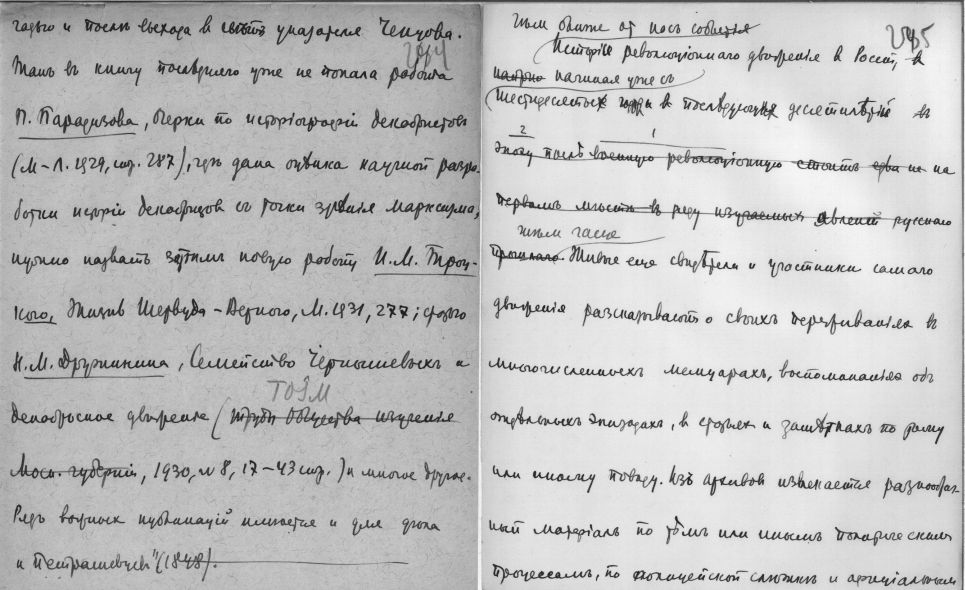 и после выхода в свѣтъ указателя Ченцова.
284
Такъ въ книгу последняго уже не попала работа
П. Парадизова, Очерки по исторіографіи декабристовъ
(М–Л. 1929, стр. 287), гдѣ дана оцѣнка научной разра-
ботки исторіи декабристов съ точки зрѣнія марксизма;
нужно назвать затѣмъ новую работу И.М. Троц-
кого, Жизнь Шервуда–Верного, М. 1931, 277; статью
Н.М. Дружинина, Семейство Чернышевыхъ и
ТОЗМ
декабрьское движение (труды Общества изученія
Моск. губерніи, 1930, № 8, 17–43 стр.) и многое другое.
Рядъ новыхъ публикацій имѣется и для дѣла
и Петрашевцевъ (1848).
чѣмъ ближе от насъ событія
285
Исторія революціоннаго движенія в Россіи, в
начиная уже съ
шестидесятых года в последующія десятилѣтія въ
2 1
эпоху послѣ военную революціонную стоитъ едва не на
первомъ мѣстѣ в ряду изучаемыхъ явленій русскаго
чѣмъ чаще
прошлаго. Живые еще свидѣтели и участники самаго
движенія разсказываютъ о своихъ переживаніяхъ въ
многочисленныхъ мемуарахъ, воспоминаніяхъ объ
отдѣльныхъ эпизодахъ, в статьяхъ и замѣткахъ по тому
или иному поводу. Изъ архивов извлекается разнообраз-
ный матеріалъ по тѣмъ или инымъ политическимъ
процессамъ, по полицейской слѣжкѣ и официальнымъ